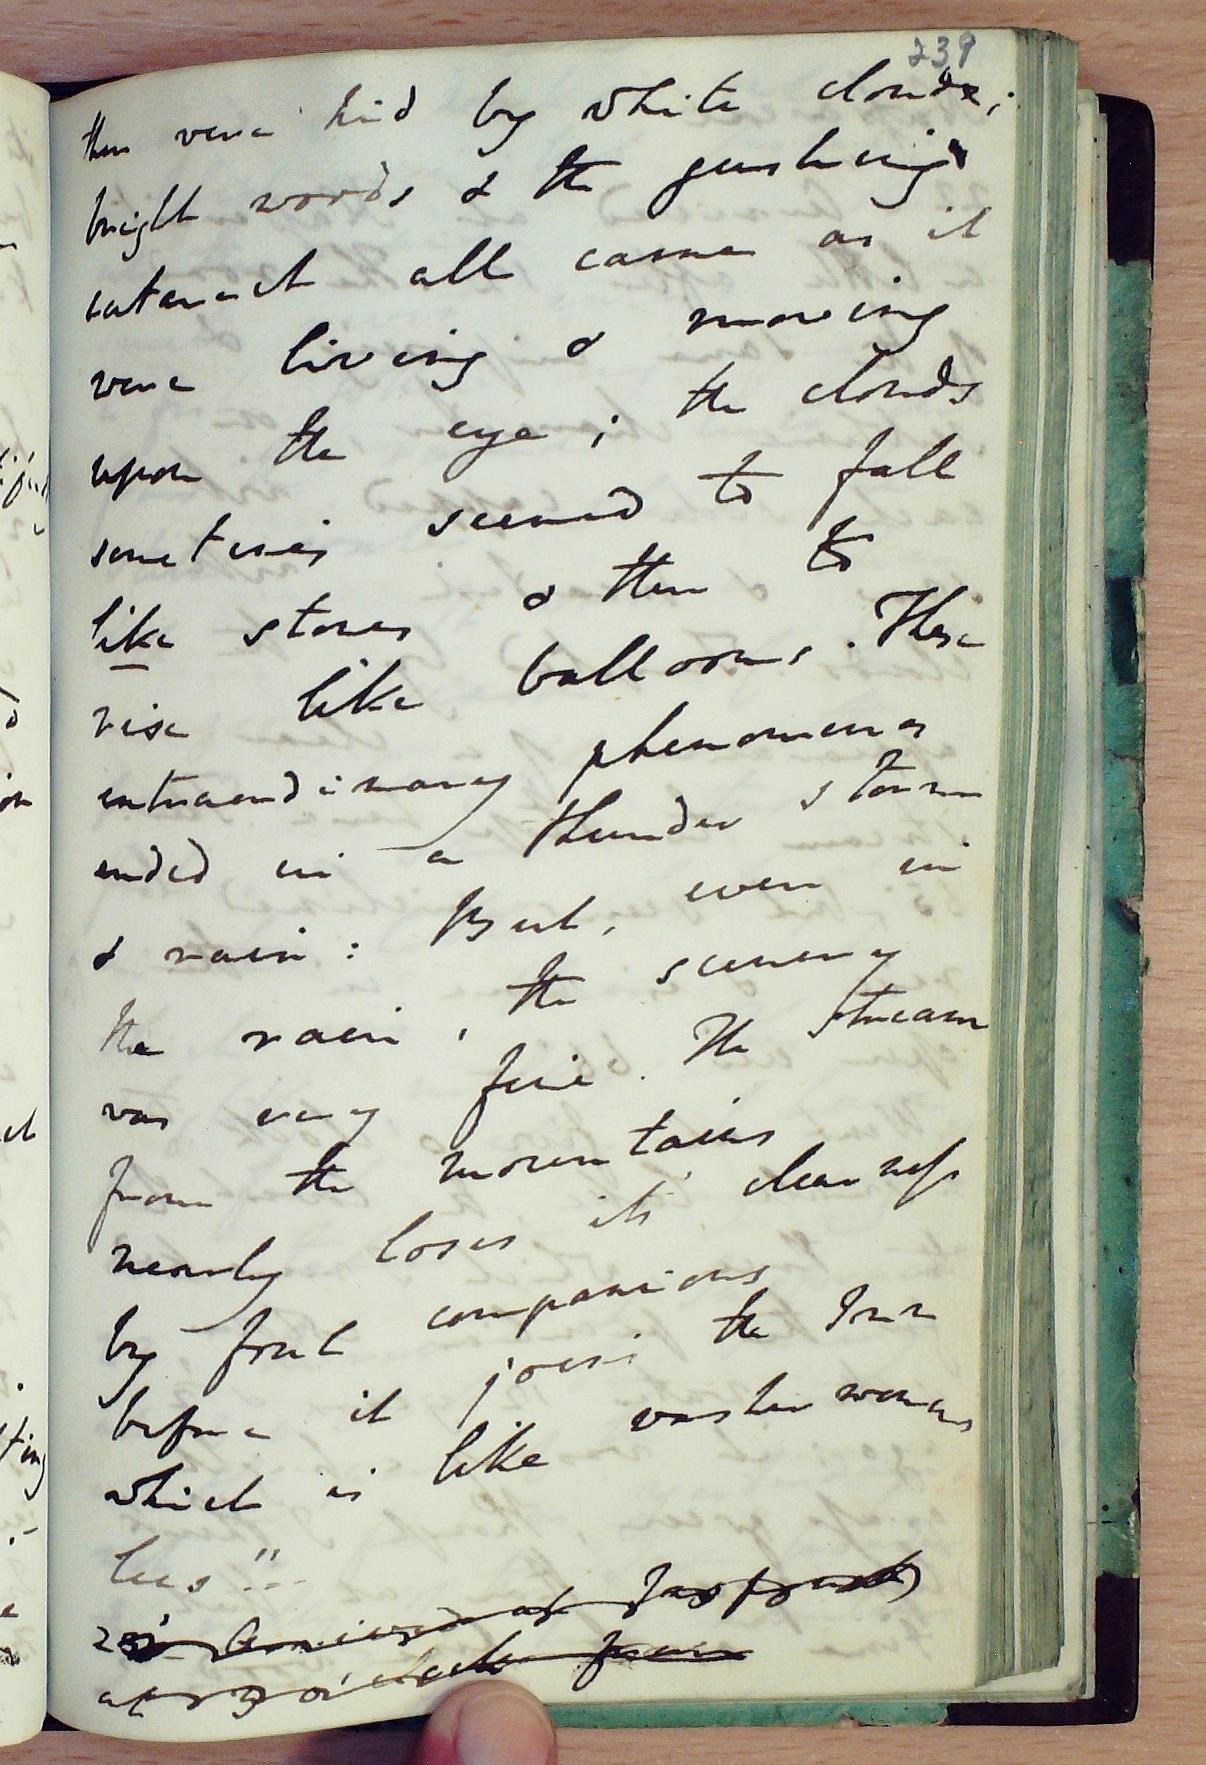 239
then were hid by white clouds;
bright woods & the gushing
cataract all came as it
were living & moving
upon the eye; the clouds
sometimes seemed to fall
like stones & then to
rise like balloons. These
extraordinary phenomena
ended in a thunder storm
& rain: But, even in
the rain, the scenery
was very fine. The stream
from the mountains
nearly loses its clearness
by foul companions
before it joins the Inn
which is like washer womans
lees"
at 3 o'clock from